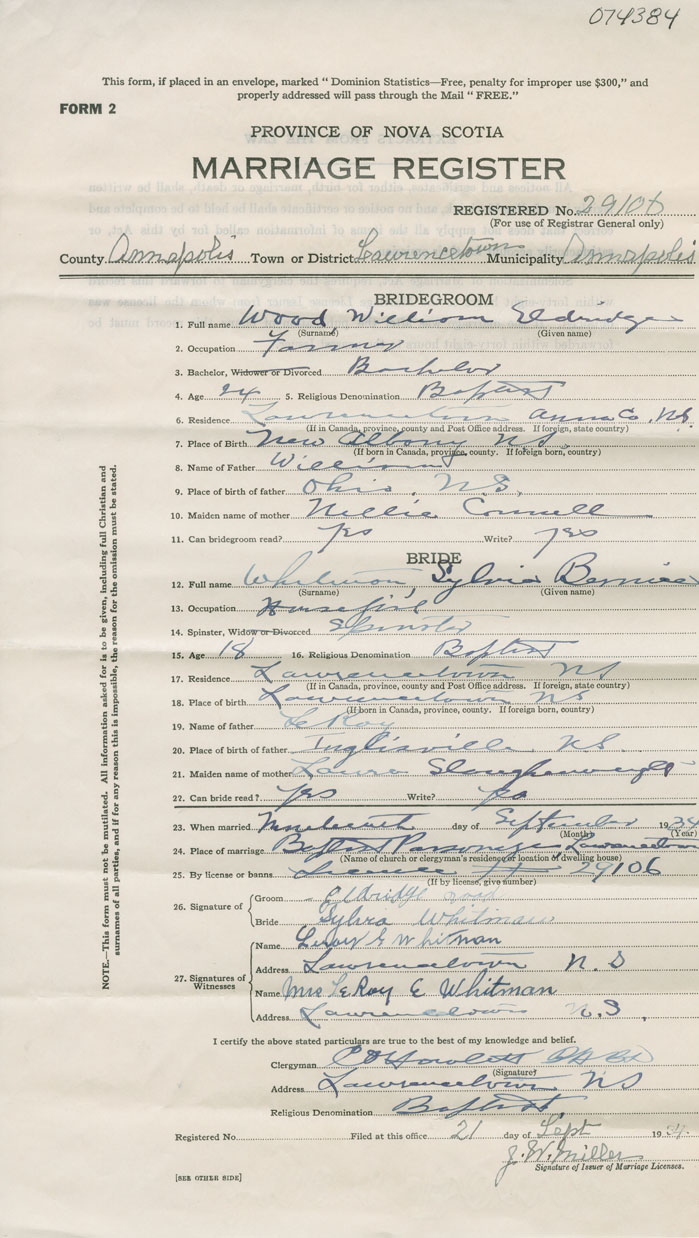 074384
This form, if placed in an envelope, marked "Dominion Statistics—Free, penalty for improper use $300," and
properly addressed will pass through the Mail "FREE."
FORM 2
PROVINCE OF NOVA SCOTIA
MARRIAGE REGISTER
REGISTERED No. 29106
(For use of Registrar General only)
County Annapolis Town or District Lawrencetown Municipality Annapolis
BRIDEGROOM
1. Full name Wood, William Eldridge
(Surname) (Given name)
2. Occupation Farmer
3. Bachelor, Widower or Divorced Bachelor
4. Age 24 5. Religious Denomination Baptist
6. Residence Lawrencetown Anna Co. N.S.
(If in Canada, province, county and Post Office address. If foreign, state country)
7. Place of Birth New Albany N S
(If born in Canada, province, county. If foreign born, country)
8. Name of Father William
9. Place of birth of father Ohio, N.S.
10. Maiden name of mother Nellie Connell
11. Can bridegroom read? yes Write? yes
BRIDE
12. Full name Whitman, Sylvia Bernice
(Surname) (Given name)
13. Occupation Housegirl
14. Spinster, Widow or Divorced Spinster
15. Age 18 16. Religious Denomination Baptist
17. Residence Lawrencetown N S
(If in Canada, province, county and Post Office address. If foreign, state country)
18. Place of birth Lawrencetown N S
(If born in Canada, province, county. If foreign born, country)
19. Name of father LeRoy
20. Place of birth of father Inglisville N.S.
21. Maiden name of mother Laura Slaughenweight
22. Can bride read? yes Write? yes
23. When married Nineteenth day of September 1934
(Month) (Year)
24. Place of marriage Baptist Parsonage Lawrencetown
(Name of church or clergyman's residence or location of dwelling house)
25. By license or banns License # 29106
(If by license, give number)
26. Signature of Groom Eldridge Wood
Bride Sylvia Whitman
27. Signatures of Witnesses Name Leroy E Whitman
Address Lawrencetown N. S
Name Mrs LeRoy E Whitman
Address Lawrencetown N.S.
I certify the above stated particulars are true to the best of my knowledge and belief.
Clergyman
(Signature)
Address Lawrencetown N S
Religious Denomination Baptist
Registered No. Filed at this office 21 day of Sept 1934
J. W. Miller
Signature of Issuer of Marriage Licenses.
[SEE OTHER SIDE]
NOTE.—This form must not be mutilated. All information asked for is to be given, including full Christian and
surnames of all parties, and if for any reason this is impossible, the reason for the omission must be stated.